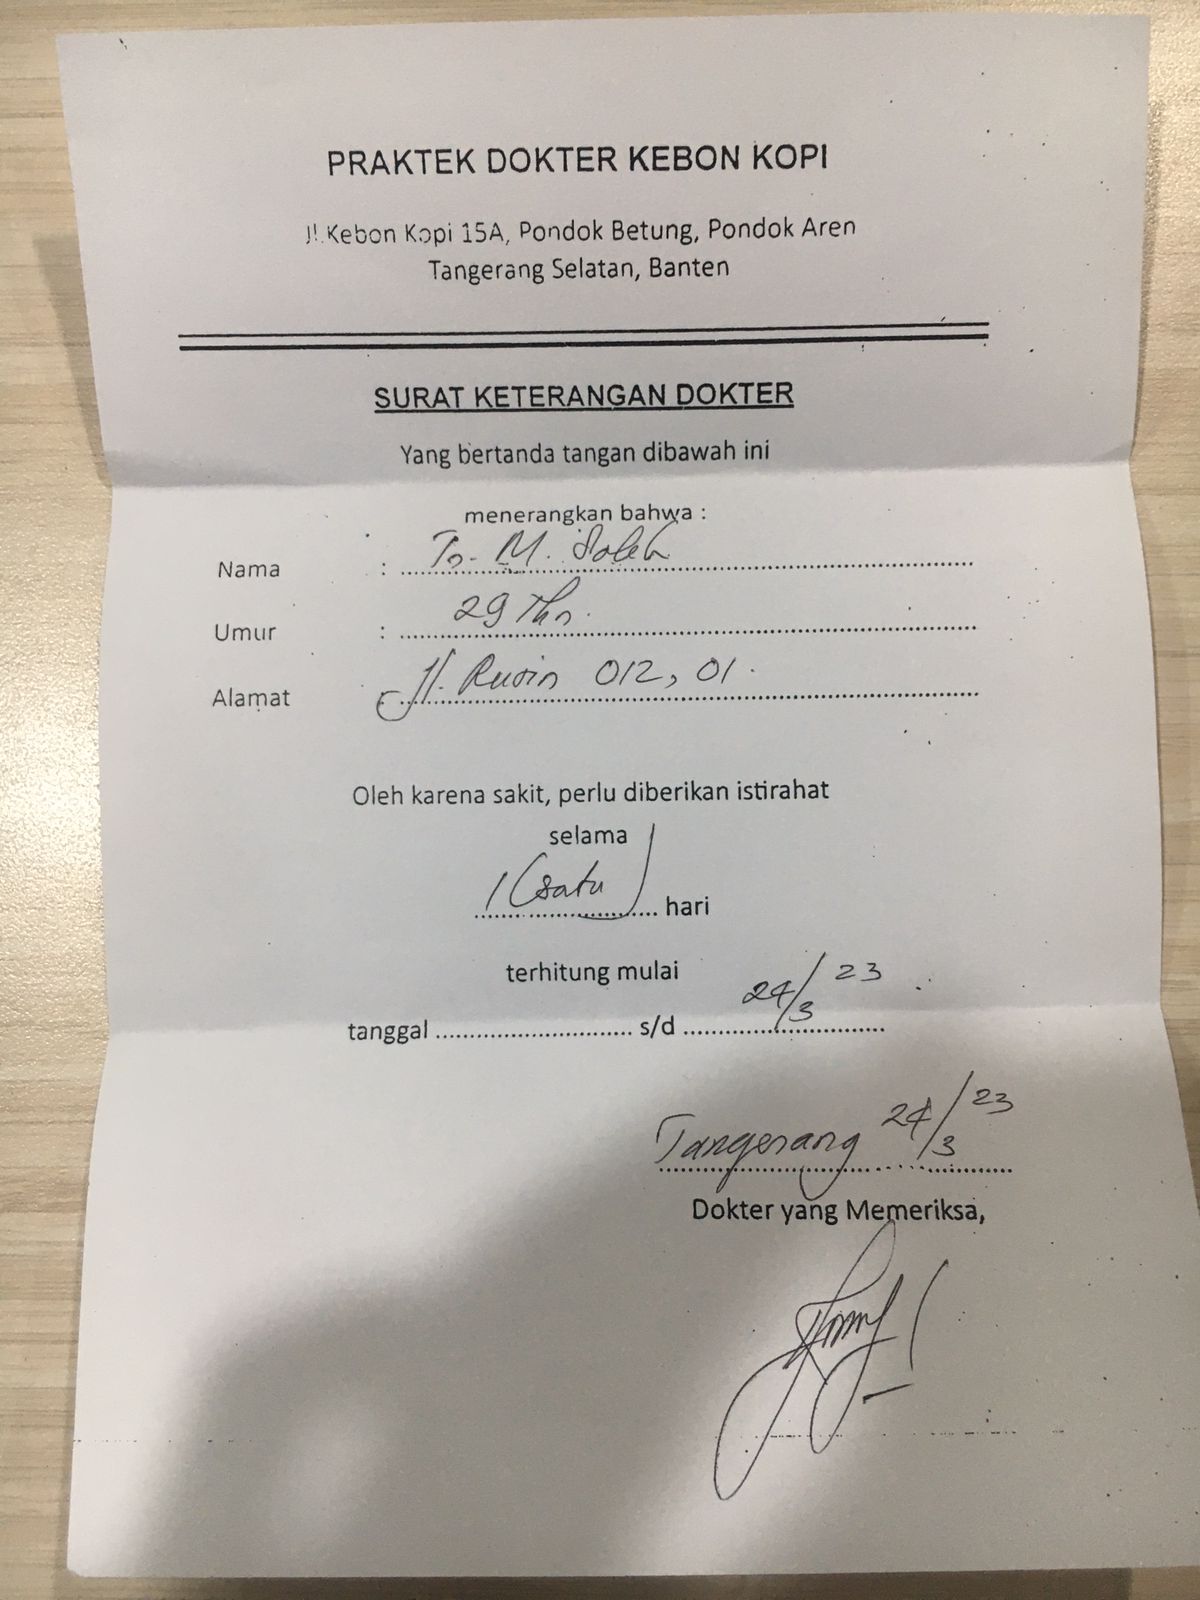 PRAKTEK DOKTER KEBON KOPI
Jl.Kebon Kopi 15A, Pondok Betung, Pondok Aren
Tangerang Selatan, Banten
SURAT KETERANGAN DOKTER
Yang bertanda tangan dibawah ini
menerangkan bahwa :
Nama : Tn. M. Soleh
Umur : 29 Thn.
Alamat : Jl. Rusin 012, 01.
Oleh karena sakit, perlu diberikan istirahat
selama
1 (satu) hari
terhitung mulai
tanggal ............................ s/d 24/3 23
Tangerang 24/3 23
Dokter yang Memeriksa,